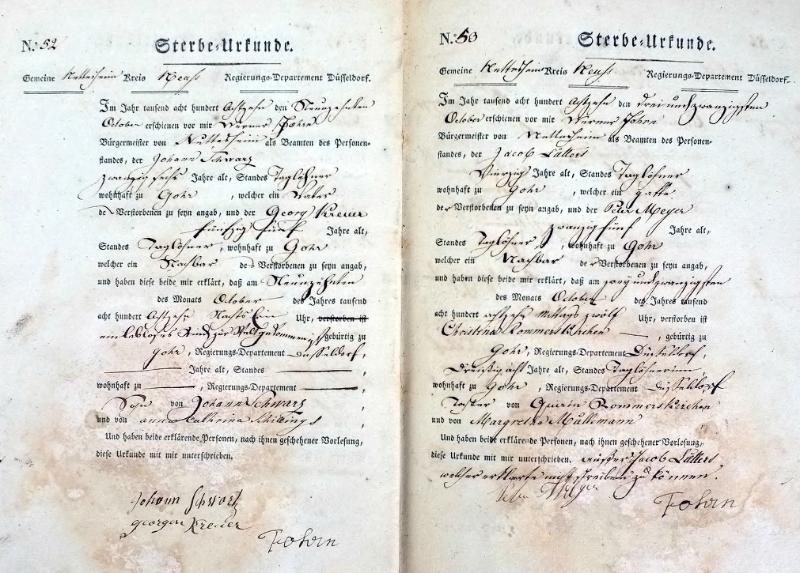 N: 52
Sterbe-Urkunde.
Gemeine Nettesheim Kreis Neuß Regierungs-Departement Düsseldorf.
Im Jahr tausend acht hundert Achtzehn den Neunzehnten
October erschienen vor mir Werner Fohrn
Bürgermeister von Nettesheim als Beamten des Personen-
standes, der Johann Schwarz
zwanzig sechs Jahre alt, Standes Taglöhner
wohnhaft zu Gohr, welcher ein Vater
des Verstorbenen zu seyn angab, und der Georg Kreuer
fünfzig fünf Jahre alt,
Standes Taglöhner, wohnhaft zu Gohr
welcher ein Nachbar des Verstorbenen zu seyn angab,
und haben diese beide mir erklärt, daß am Neunzehnten
des Monats October des Jahres tausend
acht hundert Achtzehn Nachts Ein Uhr, verstorben ist
ein lebloses Kind zur Welt gekommen gebürtig zu
Gohr, Regierungs-Departement Düsseldorf,
Jahre alt, Standes
wohnhaft zu , Regierungs-Departement
Sohn von Johann Schwarz
und von Anna Catharina Schillings
Und haben beide erklärende Personen, nach ihnen geschehener Vorlesung,
diese Urkunde mit mir unterschrieben.
Johann Schwarz
Georgen Kreuer
Fohrn
N: 50
Sterbe-Urkunde.
Gemeine Nettesheim Kreis Neuß Regierungs-Departement Düsseldorf.
Im Jahr tausend acht hundert Achtzehn den drei und zwanzigsten
October erschienen vor mir Werner Fohrn
Bürgermeister von Nettesheim als Beamten des Personen-
standes, der Jacob Lütters
Vierzig Jahre alt, Standes Taglöhner
wohnhaft zu Gohr, welcher ein Gatte
der Verstorbenen zu seyn angab, und der Peter Meyer
zwanzig fünf Jahre alt,
Standes Taglöhner, wohnhaft zu Gohr
welcher ein Nachbar der Verstorbenen zu seyn angab,
und haben diese beide mir erklärt, daß am zwey und zwanzigsten
des Monats October des Jahres tausend
acht hundert achtzehn Mittags zwölf Uhr, verstorben ist
Christina Rommerskirchen, gebürtig zu
Gohr, Regierungs-Departement Düsseldorf,
Dreißig acht Jahre alt, Standes Taglöhnerinn,
wohnhaft zu Gohr, Regierungs-Departement Düsseldorf
Tochter von Quirin Rommerskirchen
und von Margretha Müllemann
Und haben beide erklärende Personen, nach ihnen geschehener Vorlesung,
diese Urkunde mit mir unterschrieben. außer Jacob Lütters
welcher erklärte nicht schreiben zu können.
Fohrn